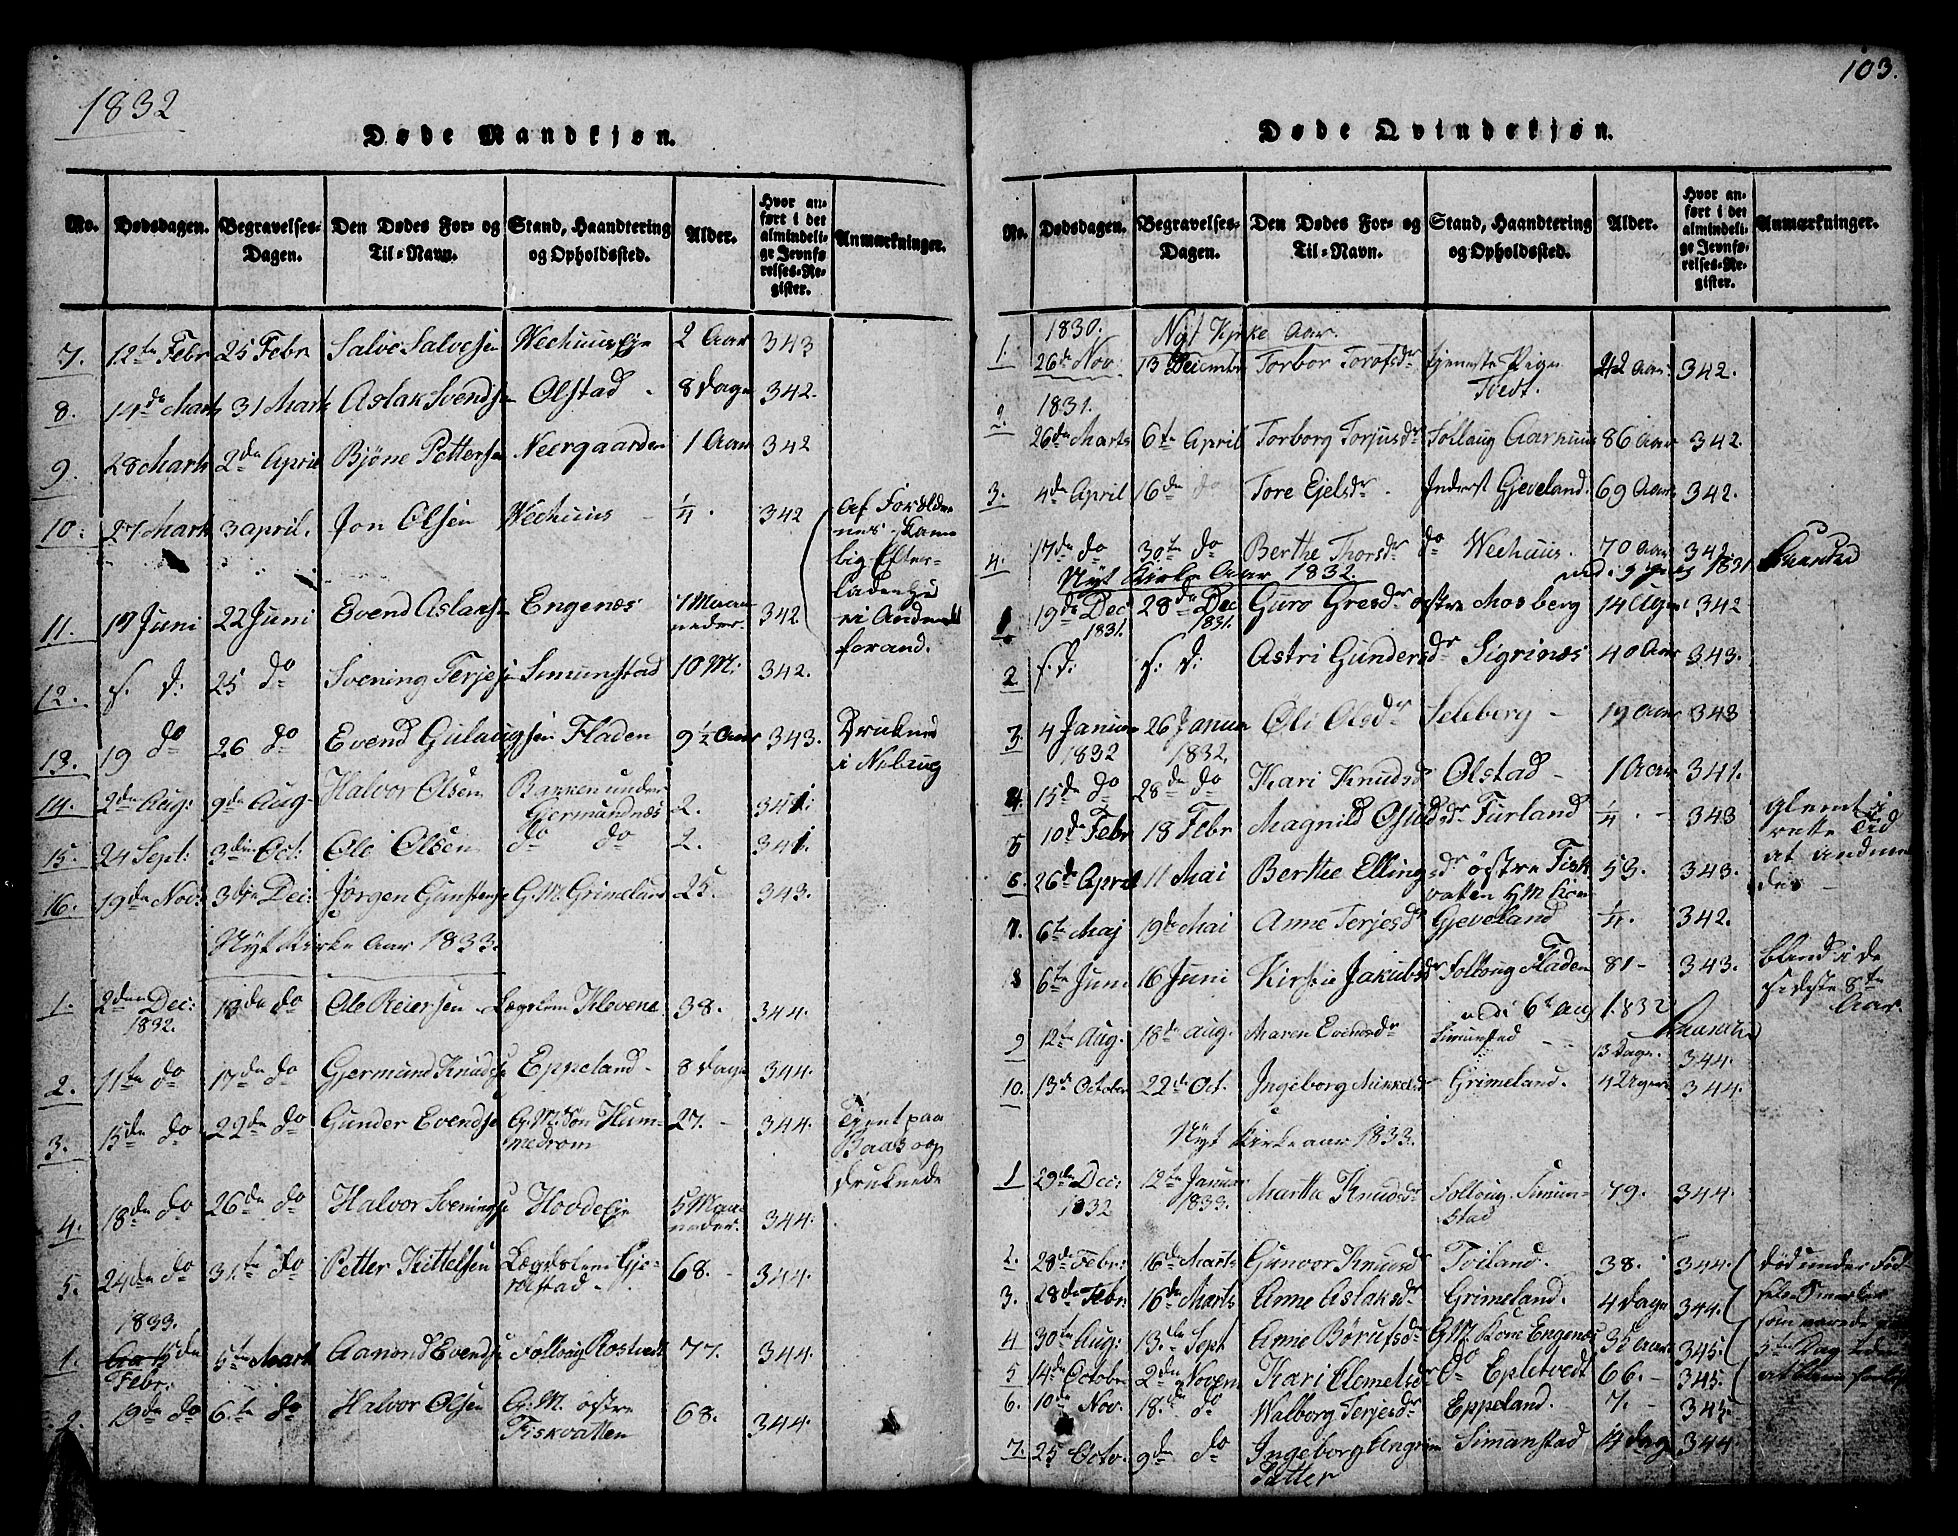 1832
Døde Mandkjøn.
No. Dødsdagen. Begravelses-Dagen. Den Dødes For- og Til-Navn. Stand, Haandtering og Opholdssted. Alder. Hvor anført i det almindelige Jevnførelses-Register. Anmærkninger.
7. 12te Febr 25 Febr Salve Salvesen Wechuus Eje 2 Aar 343
8. 14de Marts 31 Marts Aslak Svendsen Olstad 8 Dage 342.
9. 28 Marts 2den April Bjøne Pettersen Neergaarden 1 Aar 342
10. 27 Marts 3 april. Jon Olsen Wechuus 1/4. 342
Af Forældre
nes
lig Efter-
ladenhed
ei Anmeldt
forand.
11. 19 Juni 22 Juni Evend Aslaksen Engenæs 7 Maaneder. 342
12. s. d: 25 do Svening Terjesen Simunstad 10 M: 342.
13. 19 do 26 do Evend Gulaugsen Fladen 9 1/2 Aar 343. Druknede
i
14. 2den Aug: 9de Aug. Halvor Olsen Bakken under
Germundnæs 2. 341.
15. 24 Sept: 3die Oct: Ole Olsen do do 2. 341.
16. 19de Nov: 3die Dec: Jørgen Gunstens G. M. Grimeland 25. 343.
Nyt Kirke Aar 1833.
1. 2den Dec: 1832. 13de do Ole Reiersen Lægslem Klovene 38. 344.
2. 11te do 17de do Germund Knudsen Eppeland 8 Dage 344.
3. 15de do 22de do Gunder Evendsen G. M. Søn Hum-
medrom 27. 344. Tjent paa
Baas og
druknede
4. 18de do 26de do Halvor Sveningsen Hovde Eje 5 Maaneder. 344.
5. 24de do 31te do Petter Kittelsen Lægdslem Gje-
relstad 68. 344.
1833.
1. 15de Febr. 5te Marts Aamond Evendsen Follaug Rostvedt 77. 344.
2. 19de do 6te do Halvor Olsen G. M. østre
Fiskvatten 68. 344.
103.
Døde Qvindekjøn.
No. Dødsdagen. Begravelses-Dagen. Den Dødes For- og Til-Navn. Stand, Haandtering og Opholdssted. Alder. Hvor anført i det almindelige Jevnførelses-Register. Anmærkninger.
1830. Nyt Kirke Aar.
1. 26de Nov: 13 Decembr Torbor Torofsdr tjeneste Pige
Tvedt. 42 Aar 342.
1831.
2. 26de Marts 6te April Torborg Torjusdr Follaug Aarhuus 86 Aar 342.
3. 4de April 16de do Tore Ejelsdr. Inderst Gjeveland. 69 Aar 342.
4. 17de do 30te do Berthe Thorsdr do Wechuus. 70 Aar 342.
Nyt Kirke Aar 1832.
1 19de Dec 1831. 28de Dec 1831. Guro Gresdr østre Mosberg 14 Uger 342
2 s. d: s. d: Astri Gundersdr Sigrinæs 40 Aar 343.
3. 4 Januar 1832 26 Januar 1832. Oli Olsdr Seleberg 19 Aar 343
4. 15de do 28de do Kari Knudsd Olstad 1 Aar 341.
5 10de Febr 18 Febr Magnild Osudsdr Furland 1/4 343 glemt i
rette Tid
at anmel
des
6. 26de April 11 Mai Berthe Ellingsdr østre Fisk
vatten H M Kone 53. 343.
7. 6te Maj 19de Mai Anne Terjesdr Gjeveland 1/4. 342.
8 6te Juni 16 Juni Kirstie Jakobsdr Follaug Fladen 81 343. blind i de
sidste 8te
Aar.
6te aug 1832
9 12te Aug. 18de aug. Maren Evensdr Simunstad 13 Dage. 344.
10. 13de October 22de Oct. Ingeborg Mikkelsdr Grimeland. 4 Uger 344.
Nyt Kirke aar 1833.
1 29de Dec: 1832 12te Januar 1833. Martha Knudsdr Follaug Simun-
stad 79. 344.
2. 28de Febr: 16de Marts Gunvor Knudsd Tviland. 38. 344. død under Fød
3. 28de Febr: 16de Marts Anne Aslaksdr Grimeland. 4 Dage 344.
4 30te Aug: 13de Sept Anne Børufsdr G. M. Kone Engenæs 35 Aar 345.
som varede
5te Dag
5 14de October 2den Novem Kari Clemetsdr do Epletvedt 66. 345.
6. 10de Nov. 18de do Walborg Terjesdr Eppeland. 7. 345.
7. 25 Octo. 9de do Ingeborg Engrim
Datter Simonstad 14 Dag 344.